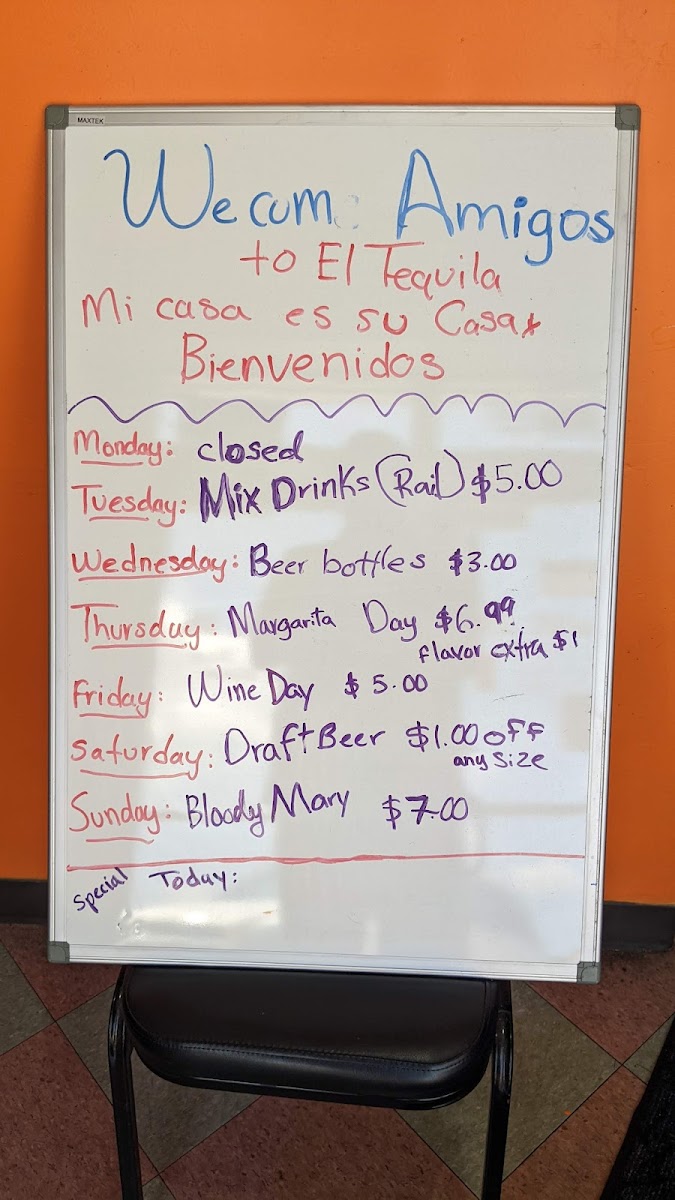 MAXTEK
Wecom Amigos
to El Tequila
Mi casa es su Casa*
Bienvenidos
Monday: closed
Tuesday: Mix Drinks (Rail) $5.00
Wednesday: Beer bottles $3.00
Thursday: Margarita Day $6.99
flavor extra $1
Friday: Wine Day $5.00
Saturday: Draft Beer $1.00 off
any size
Sunday: Bloody Mary $7.00
Special Today: